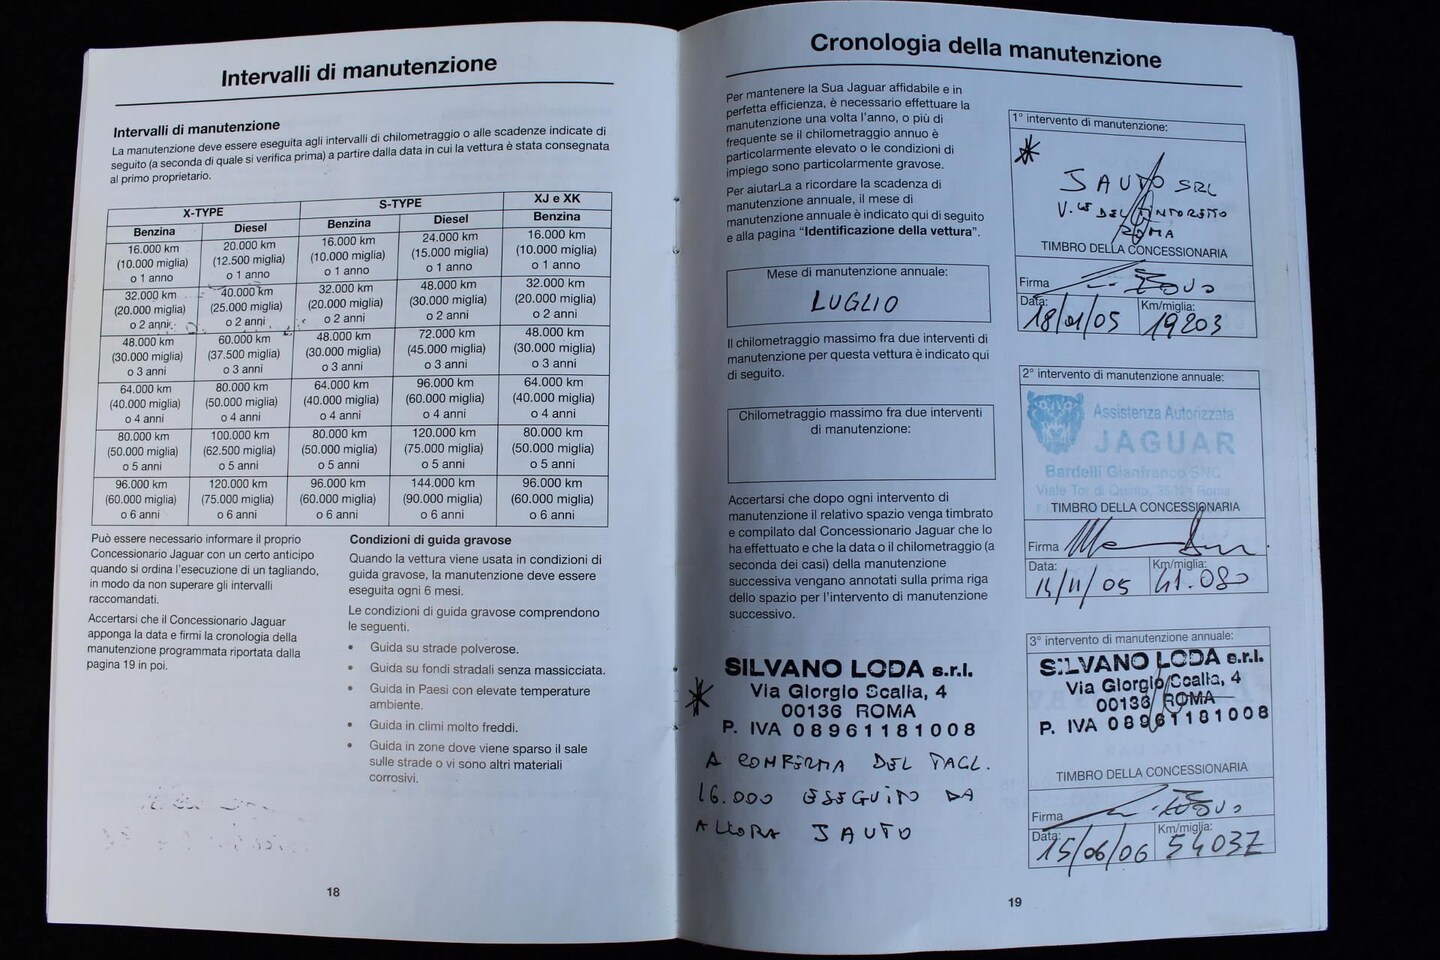 Intervalli di manutenzione
Intervalli di manutenzione
La manutenzione deve essere eseguita agli intervalli di chilometraggio o alle scadenze indicate di
seguito (a seconda di quale si verifica prima) a partire dalla data in cui la vettura è stata consegnata
al primo proprietario.
X-TYPE S-TYPE XJ e XK
Benzina Diesel Benzina Diesel Benzina
16.000 km 20.000 km 16.000 km 24.000 km 16.000 km
(10.000 miglia) (12.500 miglia) (10.000 miglia) (15.000 miglia) (10.000 miglia)
o 1 anno o 1 anno o 1 anno o 1 anno o 1 anno
32.000 km 40.000 km 32.000 km 48.000 km 32.000 km
(20.000 miglia) (25.000 miglia) (20.000 miglia) (30.000 miglia) (20.000 miglia)
o 2 anni o 2 anni o 2 anni o 2 anni o 2 anni
48.000 km 60.000 km 48.000 km 72.000 km 48.000 km
(30.000 miglia) (37.500 miglia) (30.000 miglia) (45.000 miglia) (30.000 miglia)
o 3 anni o 3 anni o 3 anni o 3 anni o 3 anni
64.000 km 80.000 km 64.000 km 96.000 km 64.000 km
(40.000 miglia) (50.000 miglia) (40.000 miglia) (60.000 miglia) (40.000 miglia)
o 4 anni o 4 anni o 4 anni o 4 anni o 4 anni
80.000 km 100.000 km 80.000 km 120.000 km 80.000 km
(50.000 miglia) (62.500 miglia) (50.000 miglia) (75.000 miglia) (50.000 miglia)
o 5 anni o 5 anni o 5 anni o 5 anni o 5 anni
96.000 km 120.000 km 96.000 km 144.000 km 96.000 km
(60.000 miglia) (75.000 miglia) (60.000 miglia) (90.000 miglia) (60.000 miglia)
o 6 anni o 6 anni o 6 anni o 6 anni o 6 anni
Può essere necessario informare il proprio
Concessionario Jaguar con un certo anticipo
quando si ordina l'esecuzione di un tagliando,
in modo da non superare gli intervalli
raccomandati.
Accertarsi che il Concessionario Jaguar
apponga la data e firmi la cronologia della
manutenzione programmata riportata dalla
pagina 19 in poi.
Condizioni di guida gravose
Quando la vettura viene usata in condizioni di
guida gravose, la manutenzione deve essere
eseguita ogni 6 mesi.
Le condizioni di guida gravose comprendono
le seguenti.
• Guida su strade polverose.
• Guida su fondi stradali senza massicciata.
• Guida in Paesi con elevate temperature
ambiente.
• Guida in climi molto freddi.
• Guida in zone dove viene sparso il sale
sulle strade o vi sono altri materiali
corrosivi.
18
Cronologia della manutenzione
Per mantenere la Sua Jaguar affidabile e in
perfetta efficienza, è necessario effettuare la
manutenzione una volta l'anno, o più di
frequente se il chilometraggio annuo è
particolarmente elevato o le condizioni di
impiego sono particolarmente gravose.
Per aiutarLa a ricordare la scadenza di
manutenzione annuale, il mese di
manutenzione annuale è indicato qui di seguito
e alla pagina "Identificazione della vettura".
Mese di manutenzione annuale:
LUGLIO
Il chilometraggio massimo fra due interventi di
manutenzione per questa vettura è indicato qui
di seguito.
Chilometraggio massimo fra due interventi
di manutenzione:
Accertarsi che dopo ogni intervento di
manutenzione il relativo spazio venga timbrato
e compilato dal Concessionario Jaguar che lo
ha effettuato e che la data o il chilometraggio (a
seconda dei casi) della manutenzione
successiva vengano annotati sulla prima riga
dello spazio per l'intervento di manutenzione
successivo.
SILVANO LODA s.r.l.
Via Giorgio Scalia, 4
00136 ROMA
P. IVA 08961181008
A CONFERMA DEL TAGL.
16.000 ESEGUITO DA
ALLORA JAUTO
1° intervento di manutenzione:
JAUTO SRL
V.LE DEL TINTORETTO
ROMA
TIMBRO DELLA CONCESSIONARIA
Firma
Data: Km/miglia:
18/01/05 19203
2° intervento di manutenzione annuale:
Assistenza Autorizzata
JAGUAR
Bardelli Gianfranco SNC
Viale Tor di Quinto, Roma
TIMBRO DELLA CONCESSIONARIA
Firma
Data: Km/miglia:
14/11/05 41.080
3° intervento di manutenzione annuale:
SILVANO LODA s.r.l.
Via Giorgio Scalia, 4
00136 ROMA
P. IVA 08961181008
TIMBRO DELLA CONCESSIONARIA
Firma
Data: Km/miglia:
15/06/06 54037
19